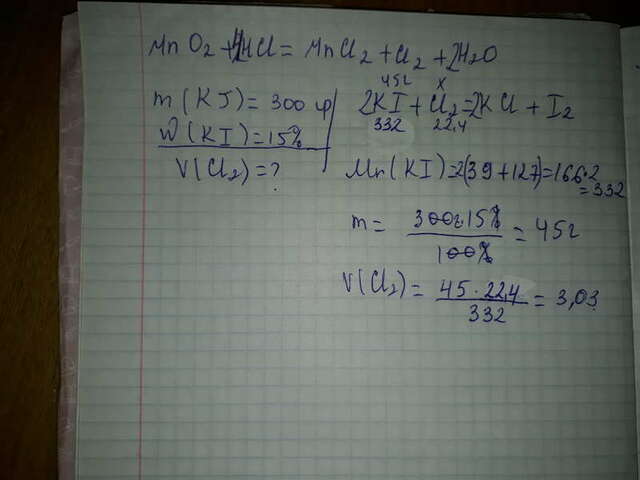 MnO2 + 4HCl = MnCl2 + Cl2 + 2H2O
m(KJ) = 300 гр
W(KI) = 15%
V(Cl2) = ?
45г x
2KI + Cl2 = 2KCl + I2
332 22,4
Mr(KI) = 2(39+127) = 166·2
= 332
m = 300г·15% / 100% = 45г
V(Cl2) = 45·22,4 / 332 = 3,03